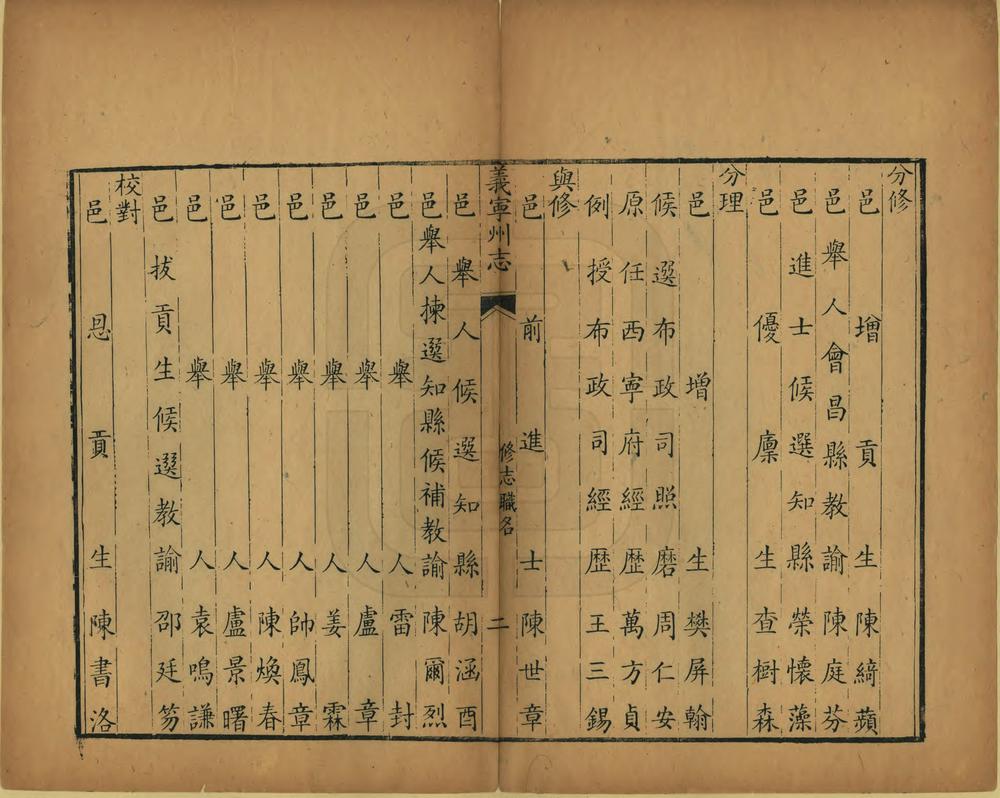 分修
邑增貢生陳綺蘋
邑舉人會昌縣教諭陳庭芬
邑進士候選知縣榮懷藻
邑優廩生查樹森
分理
邑增生樊屏翰
候選布政司照磨周仁安
原任西寧府經歷萬方貞
例授布政司經歷王三錫
與修
邑前進士陳世章
義寧州志
修志職名
二
邑舉人候選知縣胡涵酉
邑舉人揀選知縣候補教諭陳爾烈
邑舉人雷封
邑舉人盧章
邑舉人姜霖
邑舉人帥鳳章
邑舉人陳煥春
邑舉人盧景曙
邑舉人袁鳴謙
邑拔貢生候選教諭邵廷笏
校對
邑恩貢生陳書洛